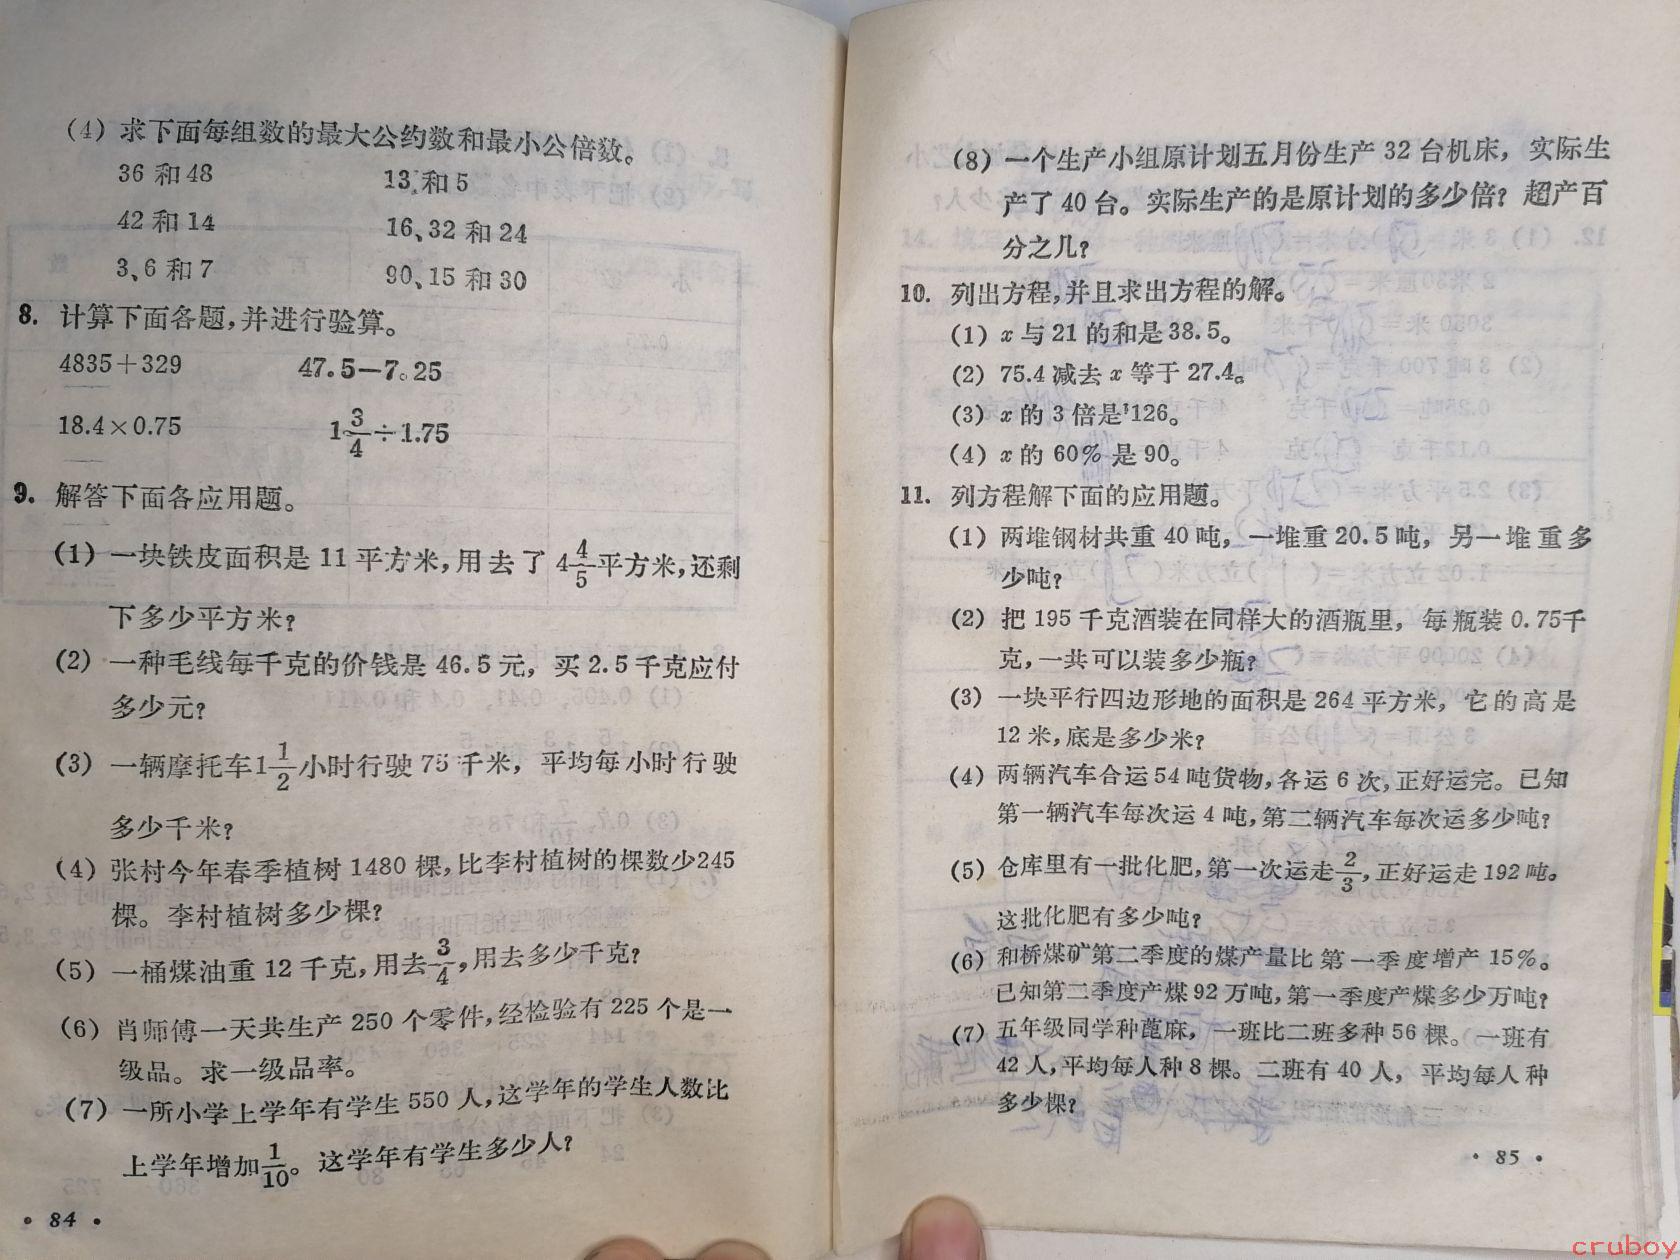 (4) 求下面每组数的最大公约数和最小公倍数。
36 和 48　　13 和 5
42 和 14　　16、32 和 24
3、6 和 7　　90、15 和 30
8. 计算下面各题,并进行验算。
4835+329　　47.5-7.25
18.4×0.75　　1 3/4÷1.75
9. 解答下面各应用题。
(1) 一块铁皮面积是 11 平方米,用去了 4 4/5 平方米,还剩
下多少平方米?
(2) 一种毛线每千克的价钱是 46.5 元, 买 2.5 千克应付
多少元?
(3) 一辆摩托车 1 1/2 小时行驶 75 千米, 平均每小时行驶
多少千米?
(4) 张村今年春季植树 1480 棵,比李村植树的棵数少245
棵。李村植树多少棵?
(5) 一桶煤油重 12 千克,用去 3/4,用去多少千克?
(6) 肖师傅一天共生产 250 个零件,经检验有 225 个是一
级品。求一级品率。
(7) 一所小学上学年有学生 550 人,这学年的学生人数比
上学年增加 1/10。这学年有学生多少人?
• 84 •
(8) 一个生产小组原计划五月份生产 32 台机床, 实际生
产了 40 台。实际生产的是原计划的多少倍? 超产百
分之几?
10. 列出方程,并且求出方程的解。
(1) x 与 21 的和是 38.5。
(2) 75.4 减去 x 等于 27.4。
(3) x 的 3 倍是 126。
(4) x 的 60% 是 90。
11. 列方程解下面的应用题。
(1) 两堆钢材共重 40 吨, 一堆重 20.5 吨, 另一堆重多
少吨?
(2) 把 195 千克酒装在同样大的酒瓶里, 每瓶装 0.75千
克,一共可以装多少瓶?
(3) 一块平行四边形地的面积是 264 平方米, 它的高是
12 米,底是多少米?
(4) 两辆汽车合运 54 吨货物,各运 6 次,正好运完。已知
第一辆汽车每次运 4 吨,第二辆汽车每次运多少吨?
(5) 仓库里有一批化肥,第一次运走 2/3,正好运走 192 吨。
这批化肥有多少吨?
(6) 和桥煤矿第二季度的煤产量比第一季度增产 15%。
已知第二季度产煤 92 万吨,第一季度产煤多少万吨?
(7) 五年级同学种蓖麻, 一班比二班多种 56 棵。一班有
42 人,平均每人种 8 棵。二班有 40 人, 平均每人种
多少棵?
• 85 •
cruboy